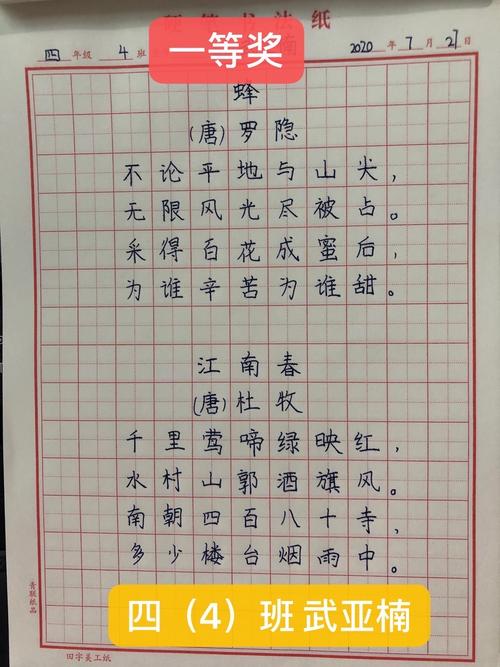 硬笔书法纸
四 年级 4 班 楠 2020 年 7 月 27 日
一等奖
蜂
(唐)罗隐
不论平地与山尖,
无限风光尽被占。
采得百花成蜜后,
为谁辛苦为谁甜。
江南春
(唐)杜牧
千里莺啼绿映红,
水村山郭酒旗风。
南朝四百八十寺,
多少楼台烟雨中。
青联纸品
四（4）班 武亚楠
田字美工纸